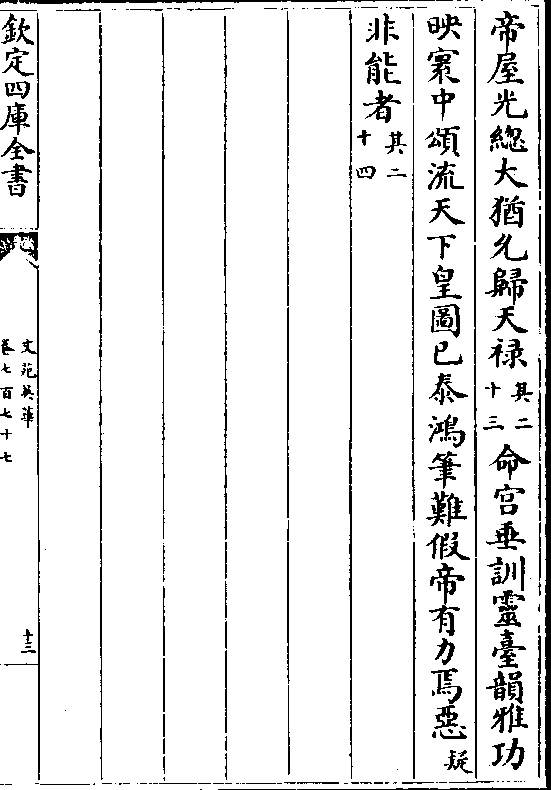 帝屋光總大猶允歸天禄其二十三命官垂訓靈臺韻雅功
映寰中頌流天下皇圖已泰鴻筆難假帝有力焉惡疑
非能者其二十四
欽定四庫全書
文苑英華
卷七百七十七
十三